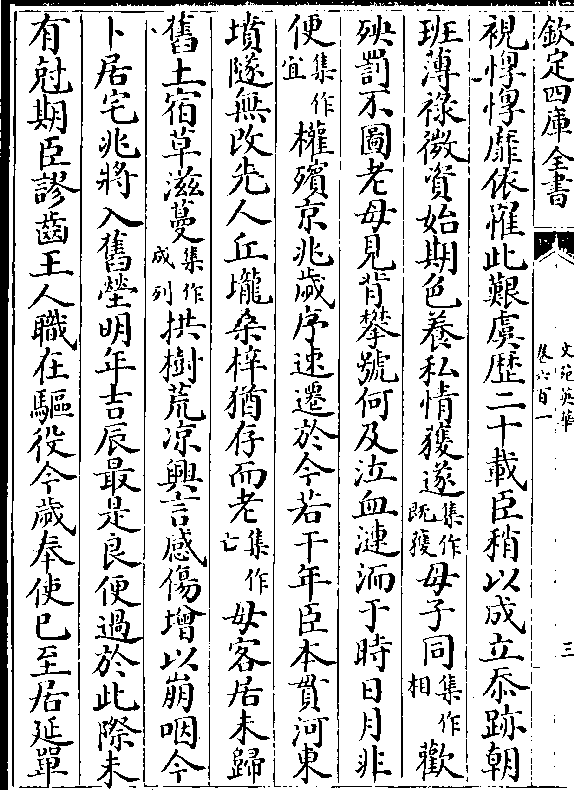 欽定四庫全書
文苑英華
卷六百一
三
視惸惸靡依罹此艱虞歴二十載臣稍以成立忝跡朝
班薄祿微資始期色養私情獲遂集作既獲母子同集作相歡
殃罰不圖老母見背攀號何及泣血漣洏于時日月非
便集作宜權殯京兆歲序速遷於今若干年臣本貫河東
墳隧無改先人丘壠桑梓猶存而老集作亡母客居未歸
舊土宿草滋蔓集作成列拱樹荒凉興言感傷增以崩咽今
卜居宅兆將入舊塋明年吉辰最是良便過於此際未
有尅期臣謬齒王人職在驅役今歲奉使已至居延單